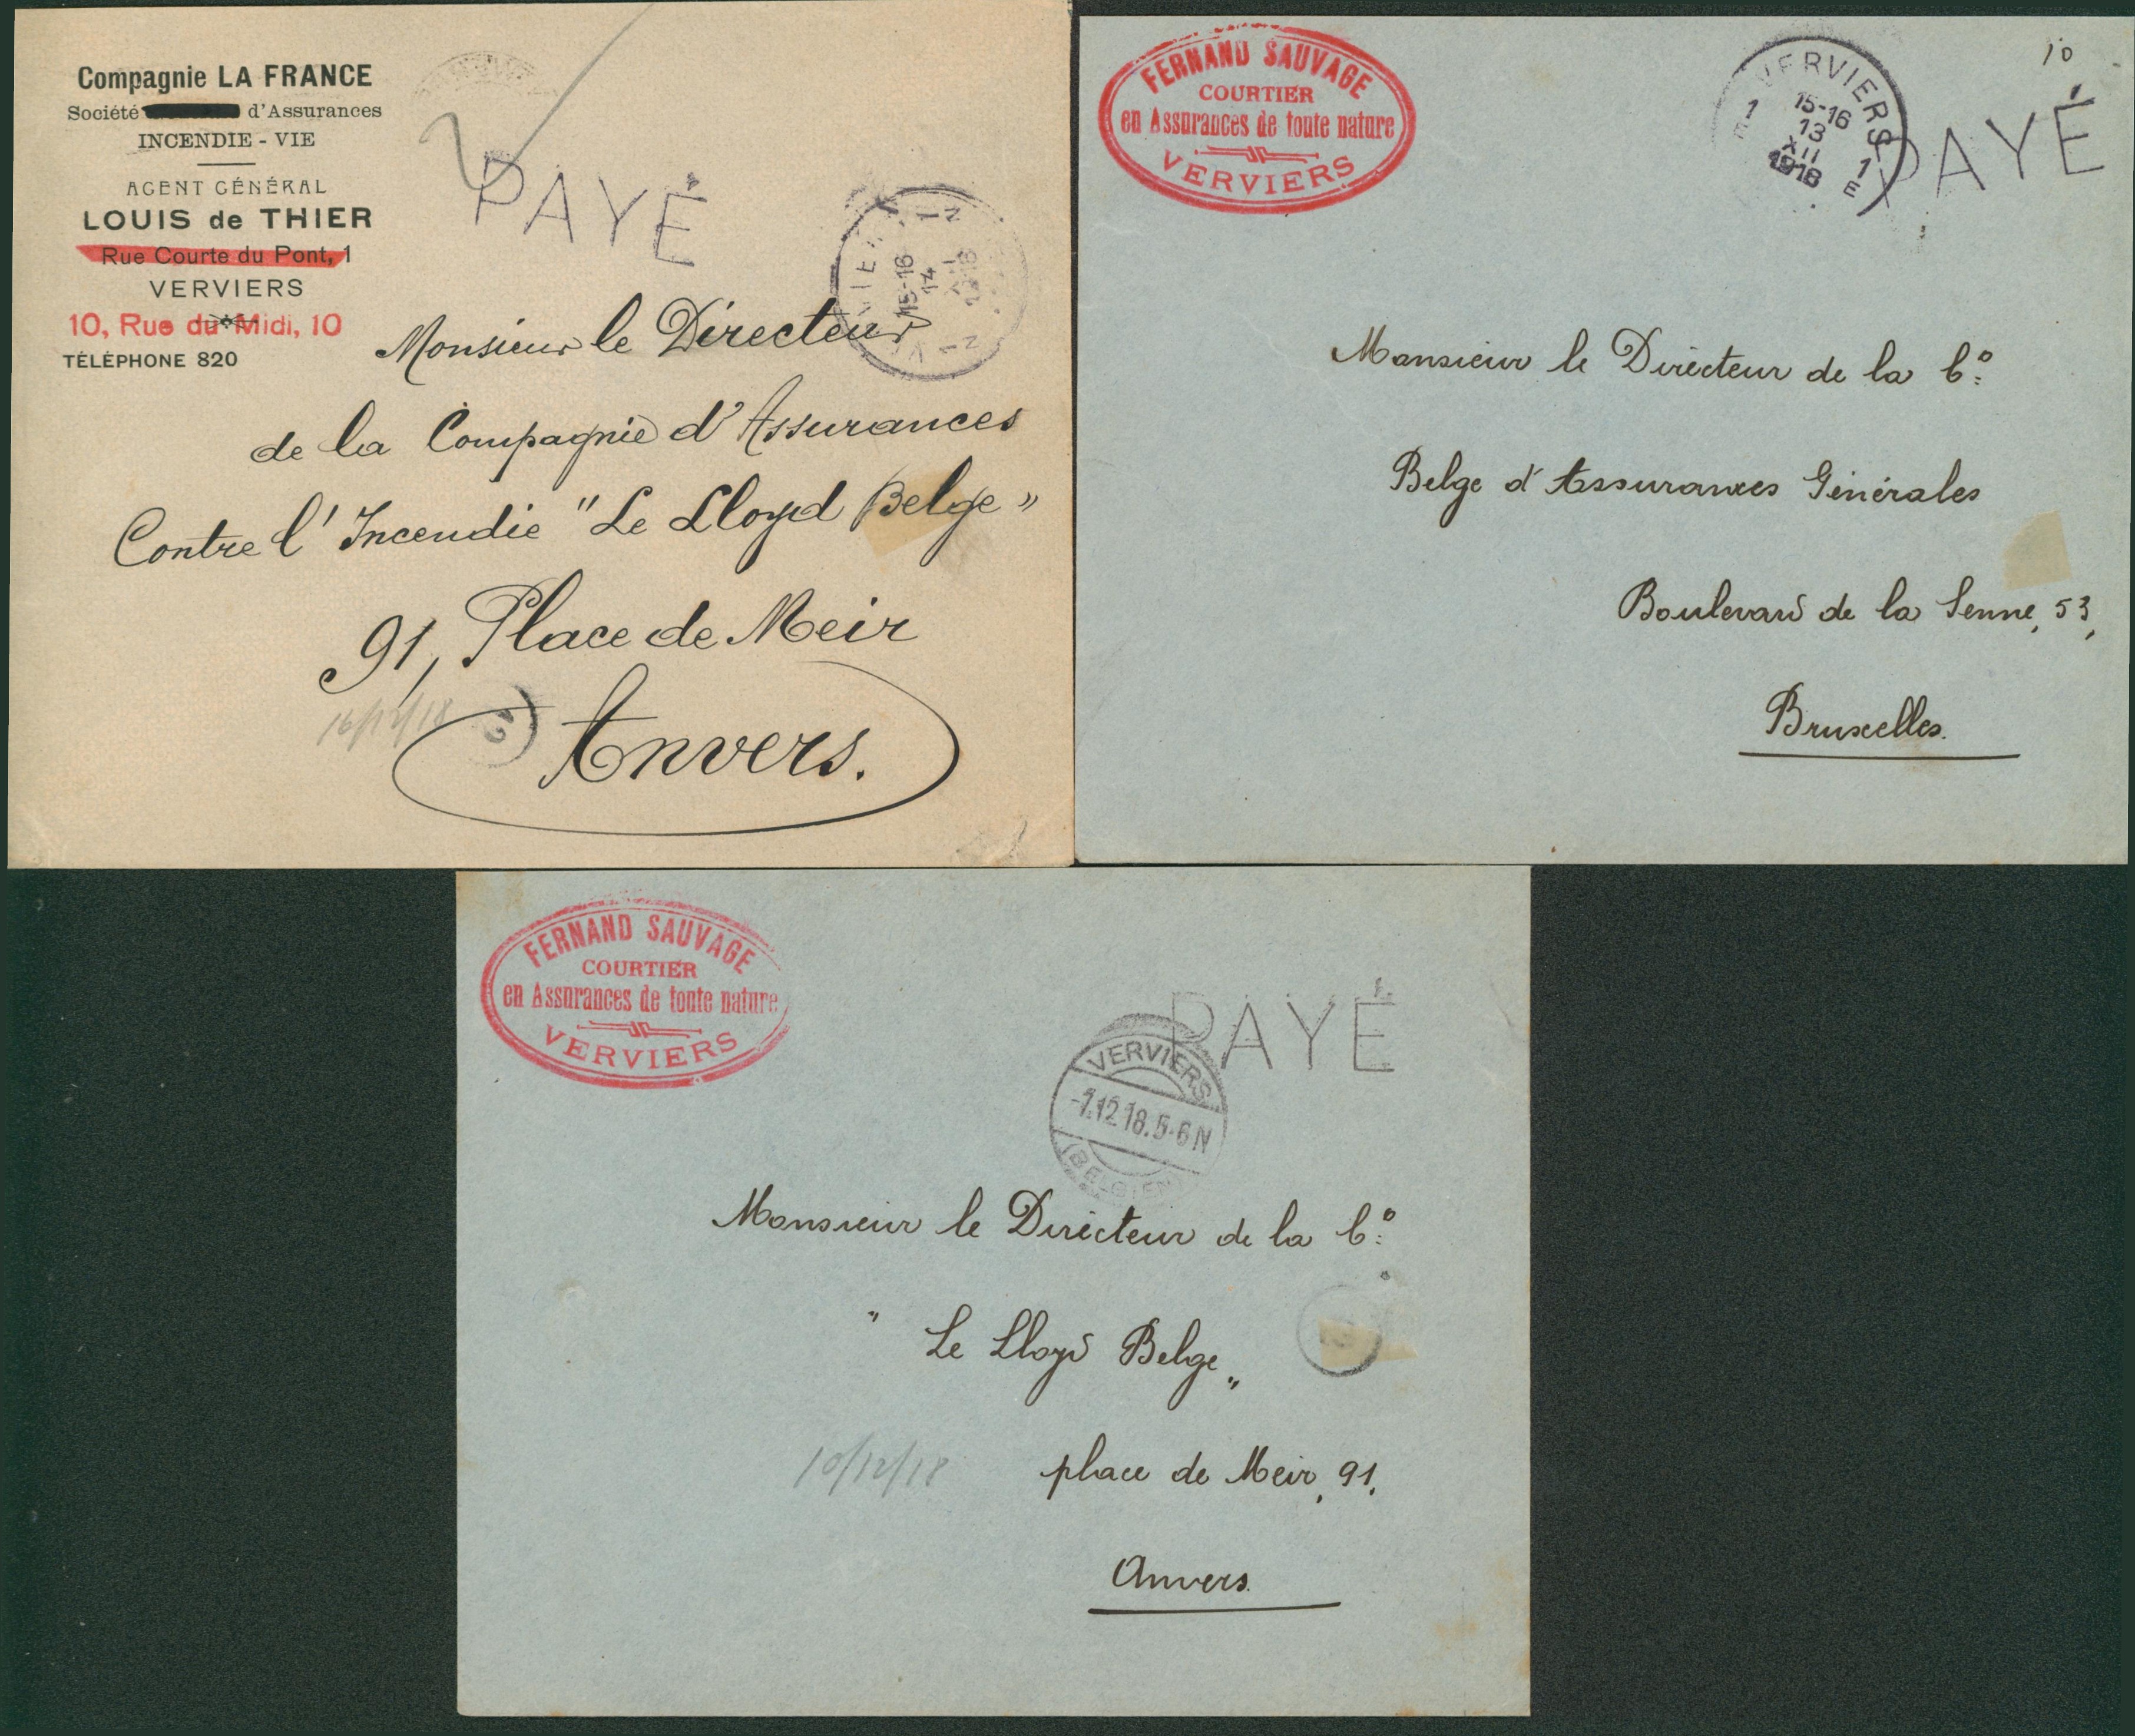 Compagnie LA FRANCE
Société d'Assurances
INCENDIE - VIE
AGENT GÉNÉRAL
LOUIS de THIER
Rue Courte du Pont, 1
VERVIERS
10, Rue du Midi, 10
TÉLÉPHONE 820
PAYÉ
15-16
14
Monsieur le Directeur
de la Compagnie d'Assurances
Contre l'Incendie "Le Lloyd Belge"
91, Place de Meir
16/12/18
Anvers.
FERNAND SAUVAGE
COURTIER
en Assurances de toute nature
VERVIERS
10
VERVIERS
1 15-16
13
XII
1918 1
E
PAYÉ
Monsieur le Directeur de la Cº:
Belge d'Assurances Générales
Boulevard de la Senne, 53,
Bruxelles.
FERNAND SAUVAGE
COURTIER
en Assurances de toute nature
VERVIERS
PAYÉ
VERVIERS
-7.12.18.5-6N
(BELGIEN)
Monsieur le Directeur de la Cº:
" Le Lloyd Belge "
10/12/18
place de Meir, 91.
Anvers.